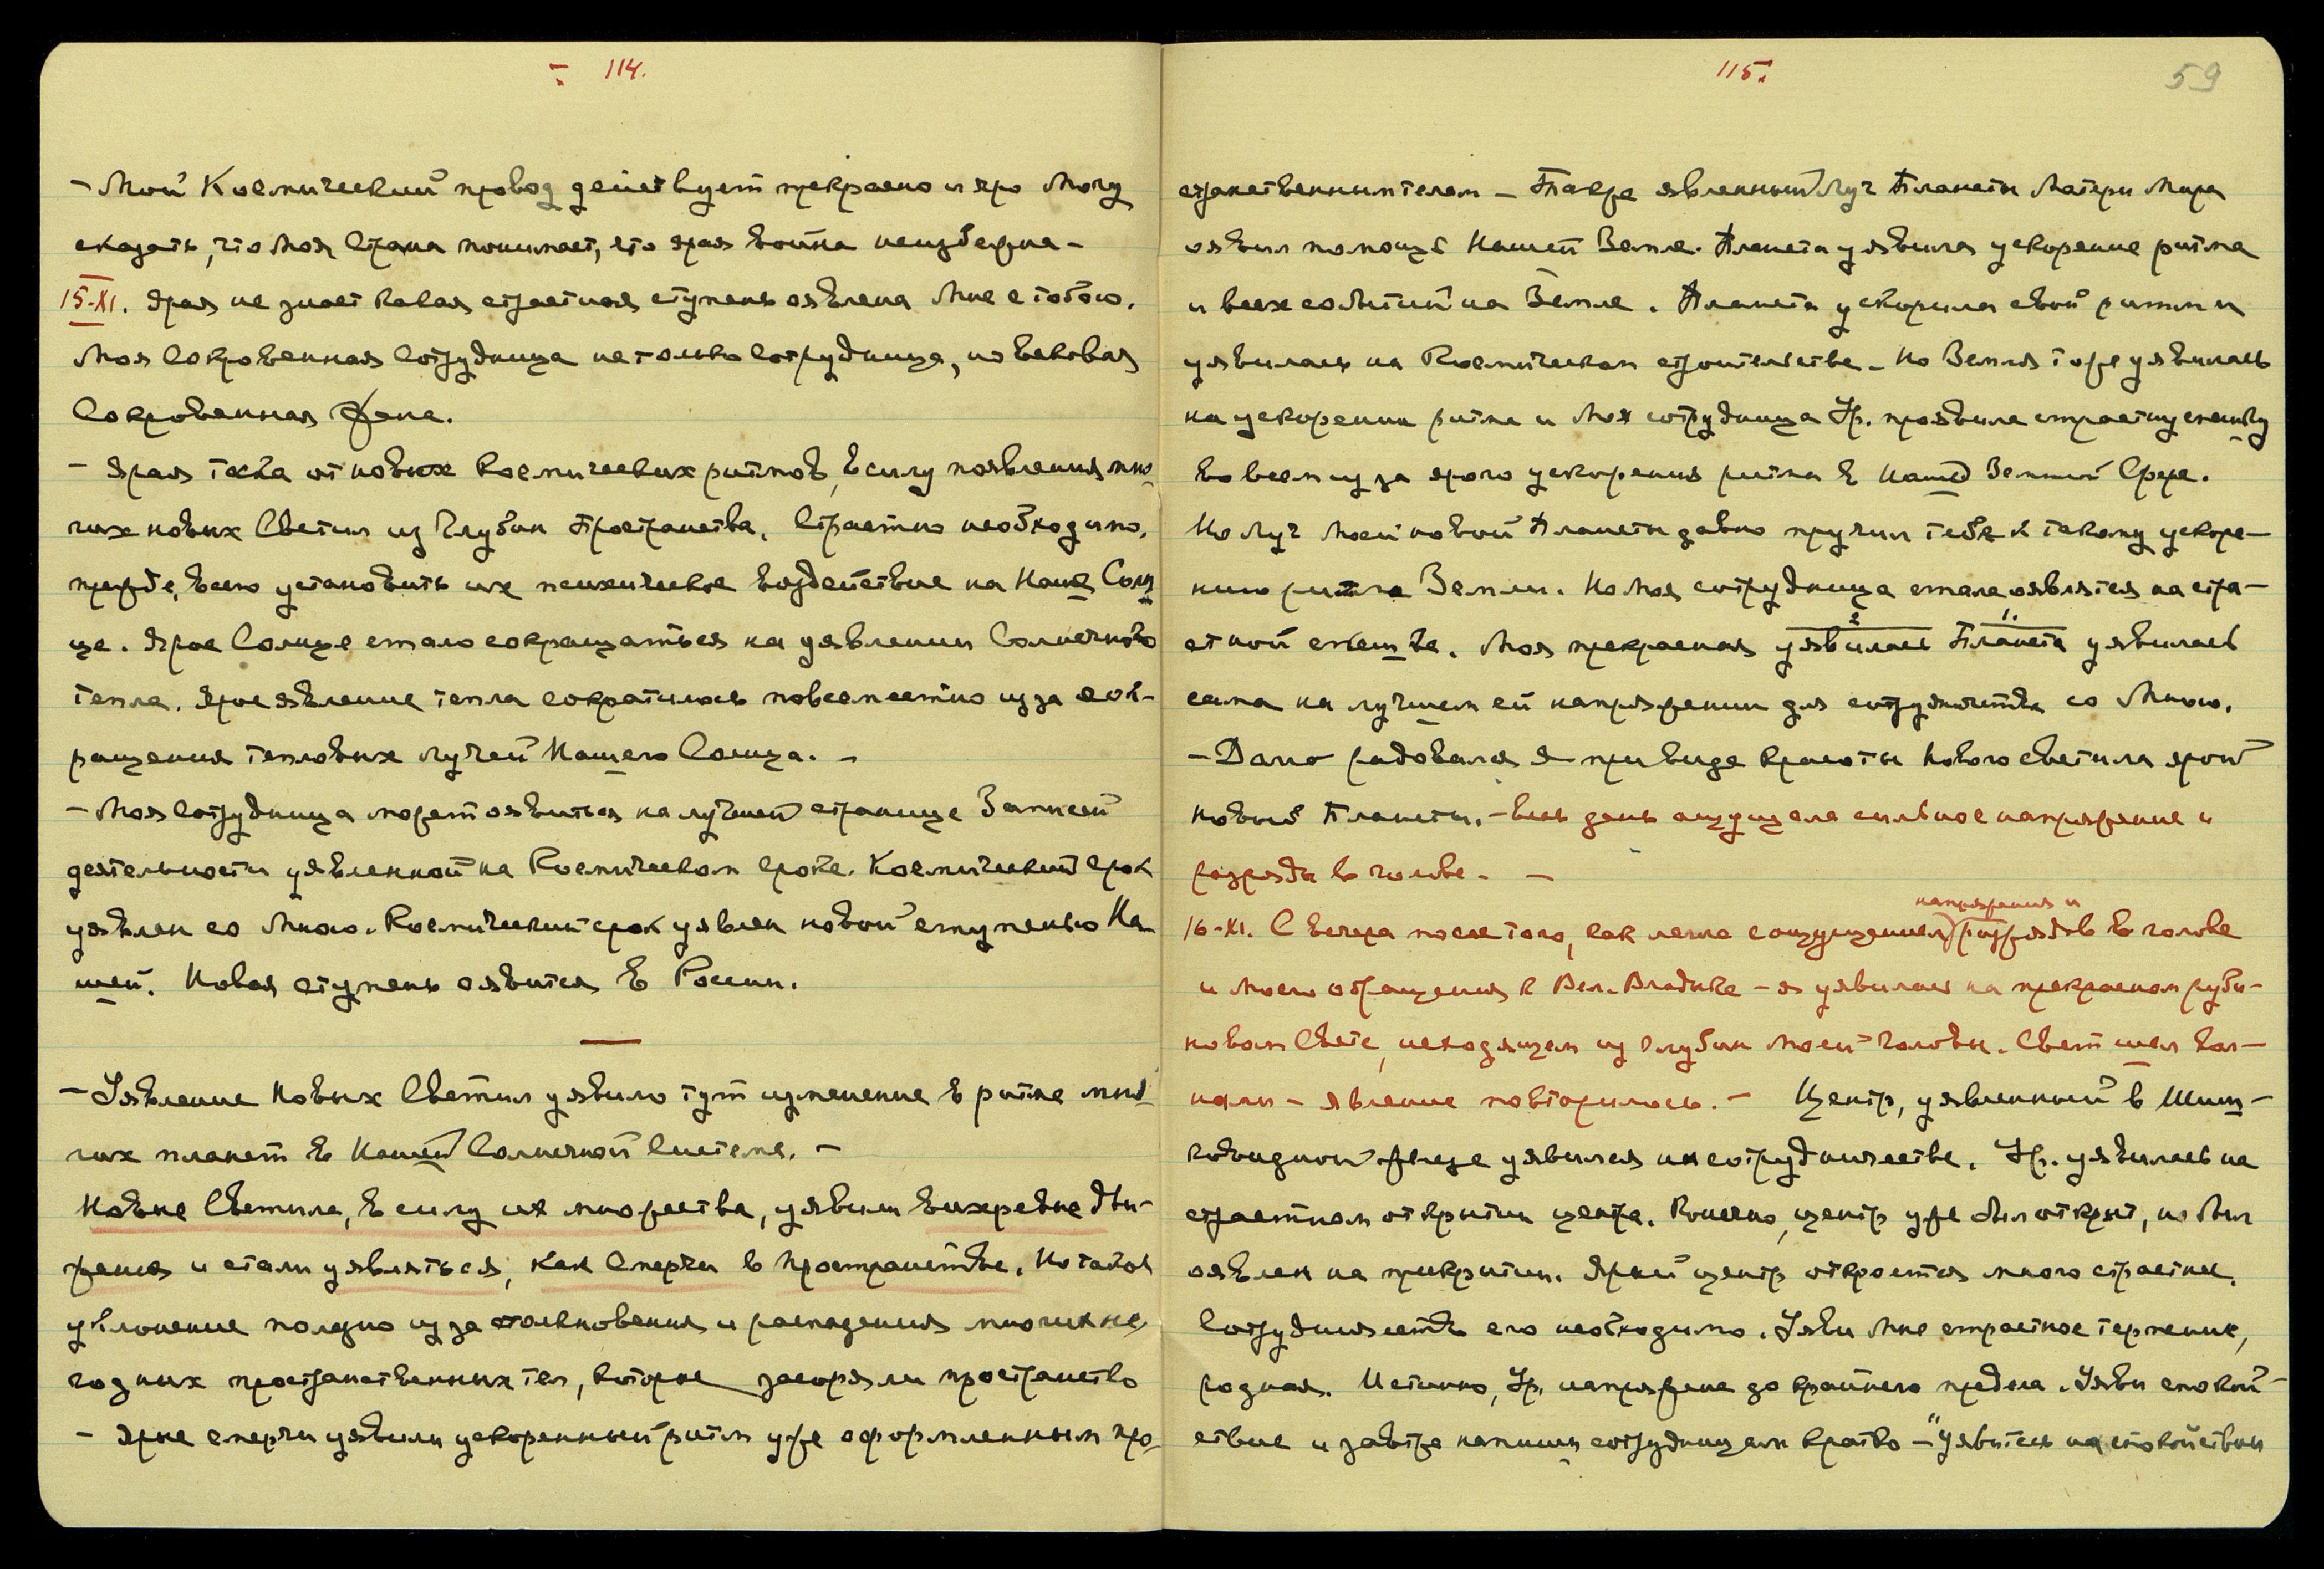 114.
- Мой Космический провод действует прекрасно и яро Могу
сказать, что Моя Страна понимает, что ярая война неизбежна -
15-XI. Ярая не знает какая страстная ступень оявлена Мне с тобою.
Моя Сокровенная Сотрудница не только Сотрудница, но вековая
Сокровенная Жена.
- Ярая тоска от новых Космических ритмов, в силу появления мно
гих новых Светил из Глубин Пространства. Страстно необходимо,
прежде, всего установить их психическое воздействие на Наше Солн
це. Ярое Солнце стало сокращаться на уявлении Солнечного
тепла. Ярое явление тепла сократилось повсеместно из за сок-
ращения тепловых лучей Нашего Солнца. -
- Моя Сотрудница может оявиться на лучшей странице Записей
деятельности уявленной на Космическом Сроке. Космический Срок
уявлен со Мною. Космический срок уявлен новой ступенью На-
шей. Новая ступень оявится в России.
- Уявление Новых Светил уявило тут изменение в ритме мно
гих планет в Нашей Солнечной Системе. -
Новые Светила, в силу их множества, уявили вихревые дви-
жения и стали уявляться, как Смерчи в Пространстве. Но такое
уклонение полезно из за столкновения и распадения многих не
годных пространственных тел, которые засоряли пространство
- Ярые смерчи уявили ускоренный ритм уже оформленным про-
115.
59
странственным телам - Также явленный Луч Планеты Матери Мира
оявил помощь Нашей Земле. Планета уявила ускорение ритма
и всех событий на Земле. Планета ускорила свой ритм и
уявилась на Космическом строительстве. Но Земля тоже уявилась
на ускорении ритма и Моя сотрудница Ур. проявила страстную спешку
во всем из за ярого ускорения ритма в Нашей Земной Сфере.
Но Луч Моей новой Планеты давно приучил тебя к такому ускоре-
нию ритма Земли. Но Моя сотрудница стала оявляться на стра-
стной спешке. Моя прекрасная уявилась 2 Планета 1. уявилась
сама на лучшем ей напряжении для сотрудничества со Мною.
- Давно радовался Я при виде красоты Нового светила ярой
новой Планеты. - Весь день ощущала сильное напряжение и
разряды в голове. -
напряжения и
16-XI. С вечера после того, как легла с ощущением разрядов в голове
и моего обращения к Вел. Владыке - я уявилась на прекрасном руби-
новом Свете, исходящем из глубин моей головы. Свет шел вол-
нами - явление повторилось. - Центр, уявленный в Шиш-
ковидной железе уявился на сотрудничестве. Ур. уявилась на
страстном открытии центра. Конечно, центр уже был открыт, но был
оявлен на прикрытии. Ярый центр откроется много страстнее.
Сотрудничество его необходимо. Уяви Мне страстное терпение,
родная. Истинно, Ур. напряжена до крайнего предела. Уяви спокой-
ствие и завтра напиши сотрудницам кратко - "Уявитесь на спокойствии